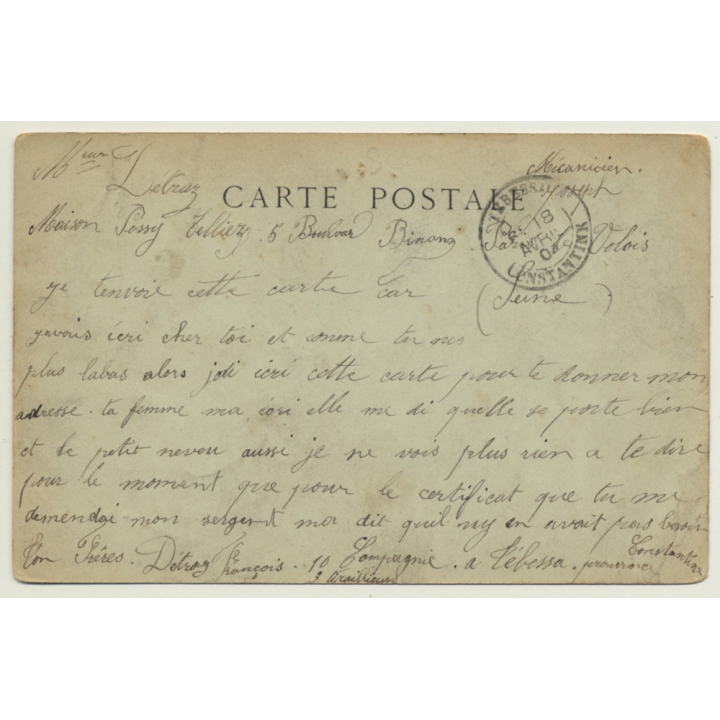 Mʳ Détraz
CARTE POSTALE
Mécanicien
Joseph
Maison Possy 5 Boulvar Valois
TEBESSA
18
AVRIL
CONSTANTINE
(Seine)
je t'envoie cette carte car
javais écri cher toi et comme tu nes
plus labas alors jdi écri cette carte pour te donner mon
adresse. ta femme ma écri elle me di quelle se porte bien
et le petit neveu aussi je ne vois plus rien a te dire
pour le moment que pour le certificat que tu me
demendai mon sergent ma dit quil ny en avait pas besoin
Ton Frères. Détraz François. 10 Compagnie. a Tébessa. province Constantine
3 tirailleurs